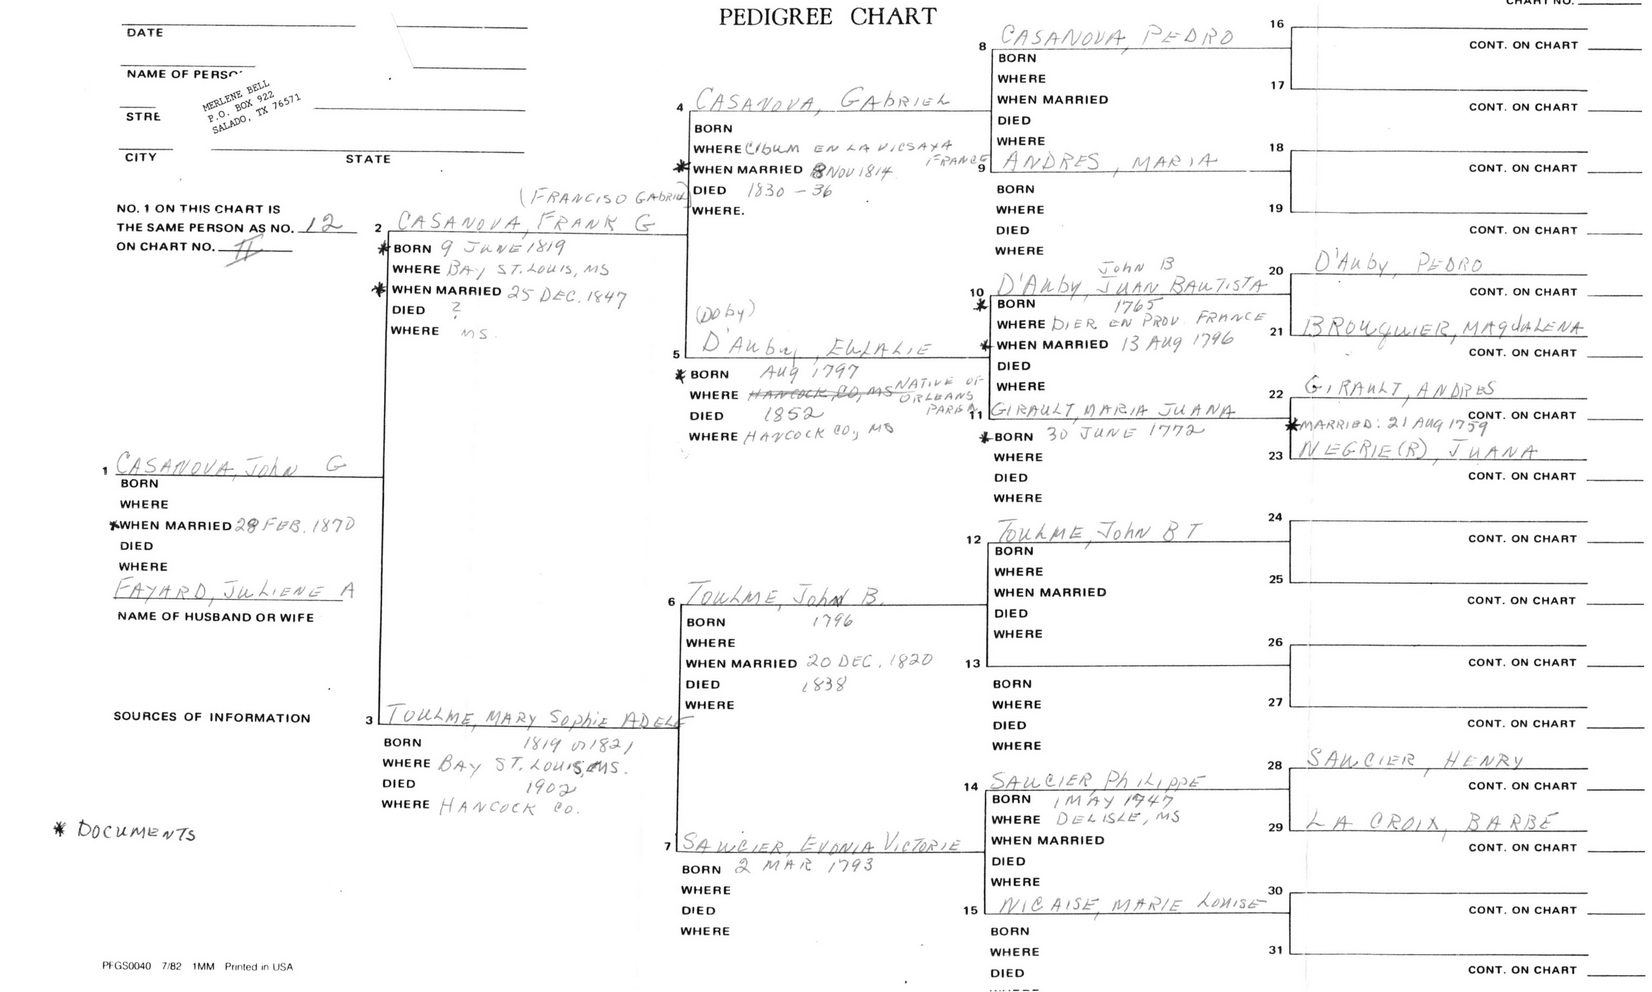 PEDIGREE CHART
CHART NO.
DATE
NAME OF PERSO
STRE
CITY STATE
MERLENE BELL
P.O. BOX 922
SALADO, TX 76571
NO. 1 ON THIS CHART IS
THE SAME PERSON AS NO. 12
ON CHART NO. II
1 CASANOVA, John G
BORN
WHERE
*WHEN MARRIED 28 FEB. 1870
DIED
WHERE
FAYARD, JULIENE A
NAME OF HUSBAND OR WIFE
SOURCES OF INFORMATION
* DOCUMENTS
PFGS0040 7/82 1MM Printed in USA
(FRANCISO GABRIEL)
2 CASANOVA, FRANK G
* BORN 9 JUNE 1819
WHERE BAY ST. LOUIS, MS
* WHEN MARRIED 25 DEC. 1847
DIED ?
WHERE MS.
3 TOULME, MARY SOPHIE ADELE
BORN 1819 or 1821
WHERE BAY ST. LOUIS, MS.
DIED 1902
WHERE HANCOCK CO.
4 CASANOVA, GABRIEL
BORN
WHERE CIBUM EN LA VICSAYA FRANCE
* WHEN MARRIED 8 NOV 1814
DIED 1830 - 36
WHERE.
(DOBY)
5 D'Auby, EULALIE
* BORN AUG 1797
WHERE HANCOCK CO, MS NATIVE OF ORLEANS PARSA
DIED 1852
WHERE HANCOCK CO, MS
6 TOULME, JOHN B.
BORN 1796
WHERE
WHEN MARRIED 20 DEC. 1820
DIED 1838
WHERE
7 SAUCIER, EVONIA VICTORIE
BORN 2 MAR 1793
WHERE
DIED
WHERE
8 CASANOVA, PEDRO
BORN
WHERE
WHEN MARRIED
DIED
WHERE
9 ANDRES, MARIA
BORN
WHERE
DIED
WHERE
John B
10 D'Auby, JUAN BAUTISTA
* BORN 1765
WHERE DIER EN PROV. FRANCE
* WHEN MARRIED 13 AUG 1796
DIED
WHERE
11 GIRAULT, MARIA JUANA
* BORN 30 JUNE 1772
WHERE
DIED
WHERE
12 TOULME, John B T
BORN
WHERE
WHEN MARRIED
DIED
WHERE
13
BORN
WHERE
DIED
WHERE
14 SAUCIER PHILIPPE
BORN 1 MAY 1747
WHERE DELISLE, MS
WHEN MARRIED
DIED
WHERE
15 NICAISE, MARIE LOUISE
BORN
WHERE
DIED
16
CONT. ON CHART
17
CONT. ON CHART
18
CONT. ON CHART
19
CONT. ON CHART
20 D'Auby, PEDRO
CONT. ON CHART
21 BROUQUIER, MAGDALENA
CONT. ON CHART
22 GIRAULT, ANDRES
CONT. ON CHART
* MARRIED: 21 AUG 1759
23 NEGRIE(R), JUANA
CONT. ON CHART
24
CONT. ON CHART
25
CONT. ON CHART
26
CONT. ON CHART
27
CONT. ON CHART
28 SAUCIER, HENRY
CONT. ON CHART
29 LA CROIX, BARBE
CONT. ON CHART
30
CONT. ON CHART
31
CONT. ON CHART